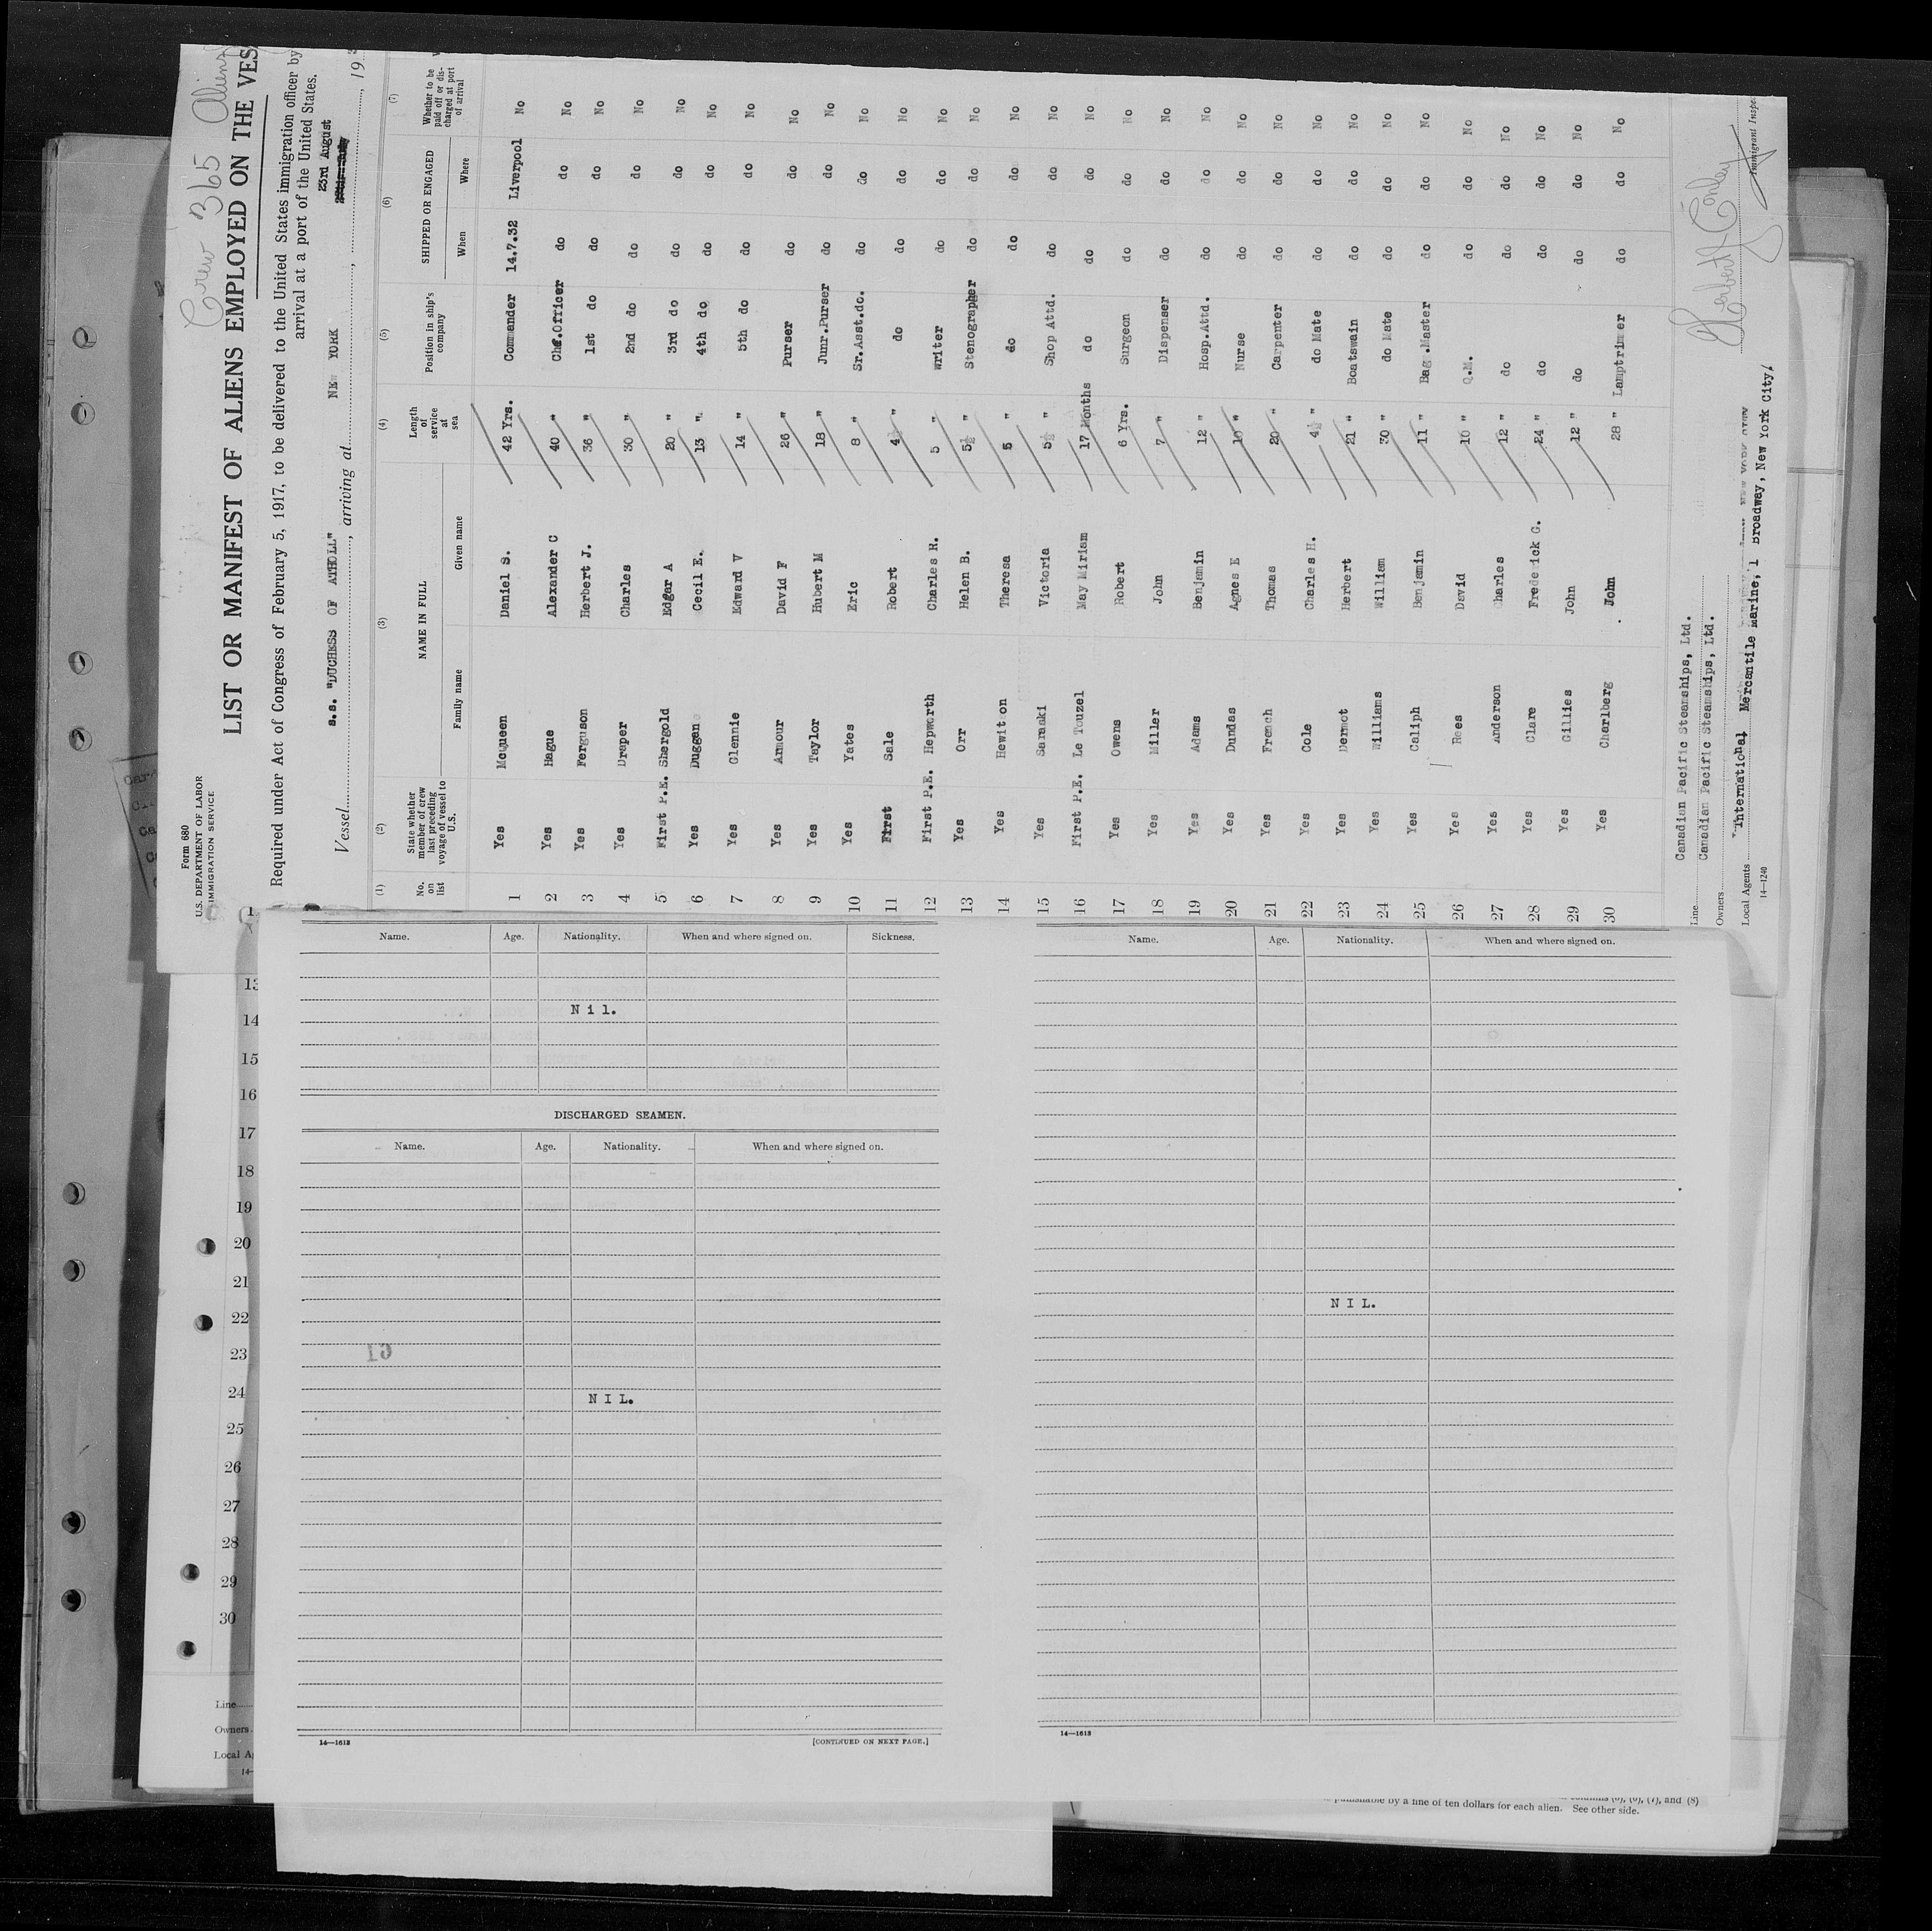 Crew 365 Aliens
Form 680
U.S. DEPARTMENT OF LABOR
IMMIGRATION SERVICE
LIST OR MANIFEST OF ALIENS EMPLOYED ON THE VES
Required under Act of Congress of February 5, 1917, to be delivered to the United States immigration officer by
arrival at a port of the United States.
23rd August
Vessel s.s. "DUCHESS OF ATHOLL", arriving at NEW YORK, 193
(1) (2) (3) (4) (5) (6) (7)
No. on list
State whether member of crew last preceding voyage of vessel to U.S.
NAME IN FULL
Family name Given name
Length of service at sea
Position in ship's company
SHIPPED OR ENGAGED
When Where
Whether to be paid off or discharged at port of arrival
1 Yes Mcqueen Daniel S. 42 Yrs. Commander 14.7.32 Liverpool No
2 Yes Hague Alexander C 40 " Chf.Officer do do No
3 Yes Ferguson Herbert J. 36 " 1st do do do No
4 Yes Draper Charles 30 " 2nd do do do No
5 First P.E. Shergold Edgar A 20 " 3rd do do do No
6 Yes Duggan Cecil E. 13 " 4th do do do No
7 Yes Glennie Edward V 14 " 5th do do do No
8 Yes Armour David F 26 " Purser do do No
9 Yes Taylor Hubert M 18 " Junr.Purser do do No
10 Yes Yates Eric 8 " Sr.Asst.do. do do No
11 First Sale Robert 4½ " do do do No
12 First P.E. Hepworth Charles R. 5 " Writer do do No
13 Yes Orr Helen B. 5½ " Stenographer do do No
14 Yes Hewitson Theresa 5 " do do do No
15 Yes Samaki Victoria 5½ " Shop Attd. do do No
16 First P.E. Le Touzel May Miriam 17 Months do do do No
17 Yes Owens Robert 6 Yrs. Surgeon do do No
18 Yes Miller John 7 " Dispenser do do No
19 Yes Adams Benjamin 12 " Hosp.Attd. do do No
20 Yes Dundas Agnes E 10 " Nurse do do No
21 Yes French Thomas 20 " Carpenter do do No
22 Yes Cole Charles H. 4½ " do Mate do do No
23 Yes Dermot Herbert 21 " Boatswain do do No
24 Yes Williams William 30 " do Mate do do No
25 Yes Caliph Benjamin 11 " Bag.Master do do No
26 Yes Rees David 10 " Q.M. do do No
27 Yes Anderson Charles 12 " do do do No
28 Yes Clare Frederick G. 24 " do do do No
29 Yes Gillies John 12 " do do do No
30 Yes Charlberg John 28 " Lamptrimmer do do No
Line Canadian Pacific Steamships, Ltd.
Owners Canadian Pacific Steamships, Ltd.
Local Agents International Mercantile Marine, 1 Broadway, New York City,
14—1240
Herbert Conley
Immigrant Inspe
Name. Age. Nationality. When and where signed on. Sickness.
Nil.
DISCHARGED SEAMEN.
Name. Age. Nationality. When and where signed on.
NIL.
14—1613
[CONTINUED ON NEXT PAGE.]
Name. Age. Nationality. When and where signed on.
NIL.
14—1613
13
14
15
16
17
18
19
20
21
22
23
24
25
26
27
28
29
30
Line
Owners
Local A
14-
columns (5), (6), (7), and (8)
punishable by a fine of ten dollars for each alien. See other side.